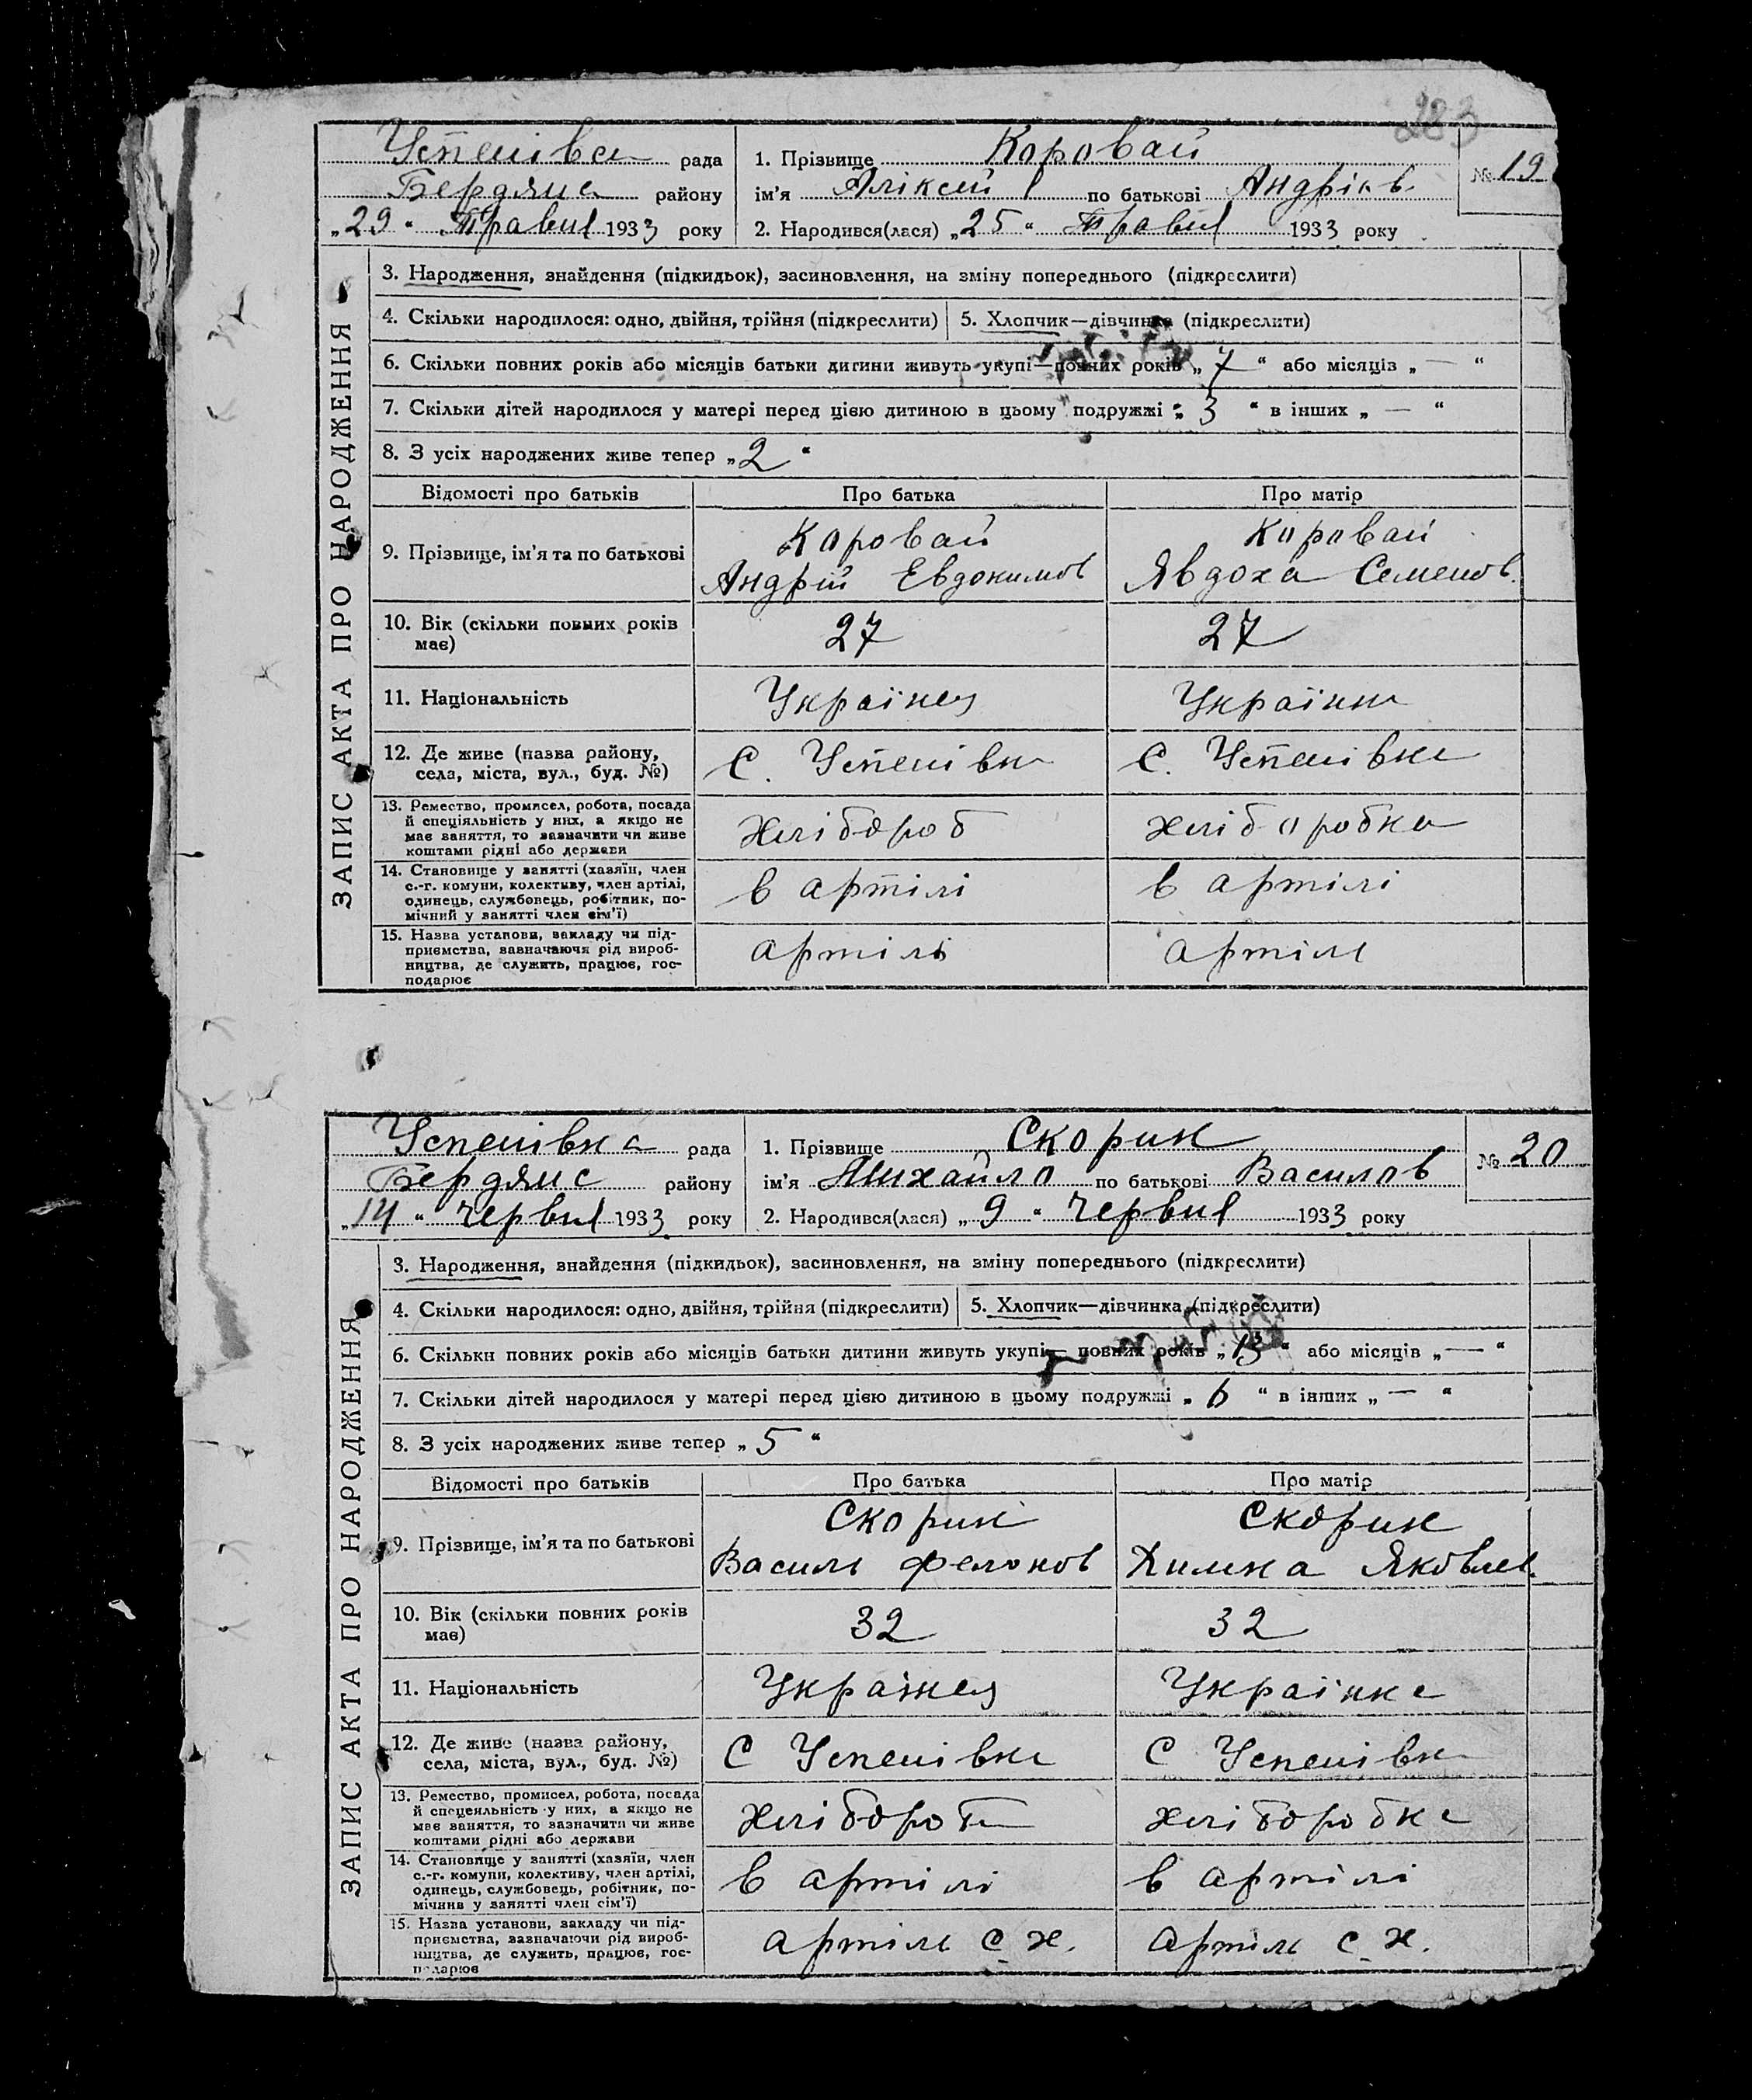 283
Успенівка рада
Бердянс району
„29“ Травня 1933 року
1. Прізвище Коровай
ім'я Аліксей по батькові Андріїв
2. Народився(лася) „25“ Травня 1933 року
№ 19
ЗАПИС АКТА ПРО НАРОДЖЕННЯ
3. Народження, знайдення (підкидьок), засиновлення, на зміну попереднього (підкреслити)
4. Скільки народилося: одно, двійня, трійня (підкреслити) 5. Хлопчик—дівчинка (підкреслити)
6. Скільки повних років або місяців батьки дитини живуть укупі—повних років „7“ або місяців „—“
7. Скільки дітей народилося у матері перед цією дитиною в цьому подружжі „3“ в інших „—“
8. З усіх народжених живе тепер „2“
Відомості про батьків Про батька Про матір
9. Прізвище, ім'я та по батькові
Коровай
Андрій Евдокимов
Коровай
Явдоха Семенов.
10. Вік (скільки повних років
має)
27
27
11. Національність
Українец
Українка
12. Де живе (назва району,
села, міста, вул., буд. №)
С. Успенівка
С. Успенівка
13. Ремество, промисел, робота, посада
й спеціяльність у них, а якщо не
має заняття, то зазначити чи живе
коштами рідні або держави
Хлібороб
хліборобка
14. Становище у занятті (хазяїн, член
с.-г. комуни, колективу, член артілі,
одинець, службовець, робітник, по-
мічний у занятті член сім'ї)
в артілі
в артілі
15. Назва установи, закладу чи під-
приємства, зазначаючя рід вироб-
ництва, де служить, працює, гос-
подарює
артілі
артіль
Успенівка рада
Бердянс району
„14“ червня 1933 року
1. Прізвище Скорик
ім'я Михайло по батькові Василов
2. Народився(лася) „9“ Червня 1933 року
№ 20
ЗАПИС АКТА ПРО НАРОДЖЕННЯ
3. Народження, знайдення (підкидьок), засиновлення, на зміну попереднього (підкреслити)
4. Скільки народилося: одно, двійня, трійня (підкреслити) 5. Хлопчик—дівчинка (підкреслити)
6. Скільки повних років або місяців батьки дитини живуть укупі— повних років „13“ або місяців „—“
7. Скільки дітей народилося у матері перед цією дитиною в цьому подружжі „6“ в інших „—“
8. З усіх народжених живе тепер „5“
Відомості про батьків Про батька Про матір
9. Прізвище, ім'я та по батькові
Скорик
Василь Фелонов
Скорик
Химка Яковлев.
10. Вік (скільки повних років
має)
32
32
11. Національність
Українец
Українка
12. Де живе (назва району,
села, міста, вул., буд. №)
С Успенівка
С Успенівка
13. Ремество, промисел, робота, посада
й спецеяльність у них, а якщо не
має заняття, то зазначити чи живе
коштами рідні або держави
Хлібороб
хліборобка
14. Становище у занятті (хазяїн, член
с.-г. комуни, колективу, член артілі,
одинець, службовець, робітник, по-
мічний у занятті член сім'ї)
в артілі
в артілі
15. Назва установи, закладу чи під-
приємства, зазначаючи рід вироб-
ництва, де служить, працює, гос-
подарює
артіль с х.
артіль с х.